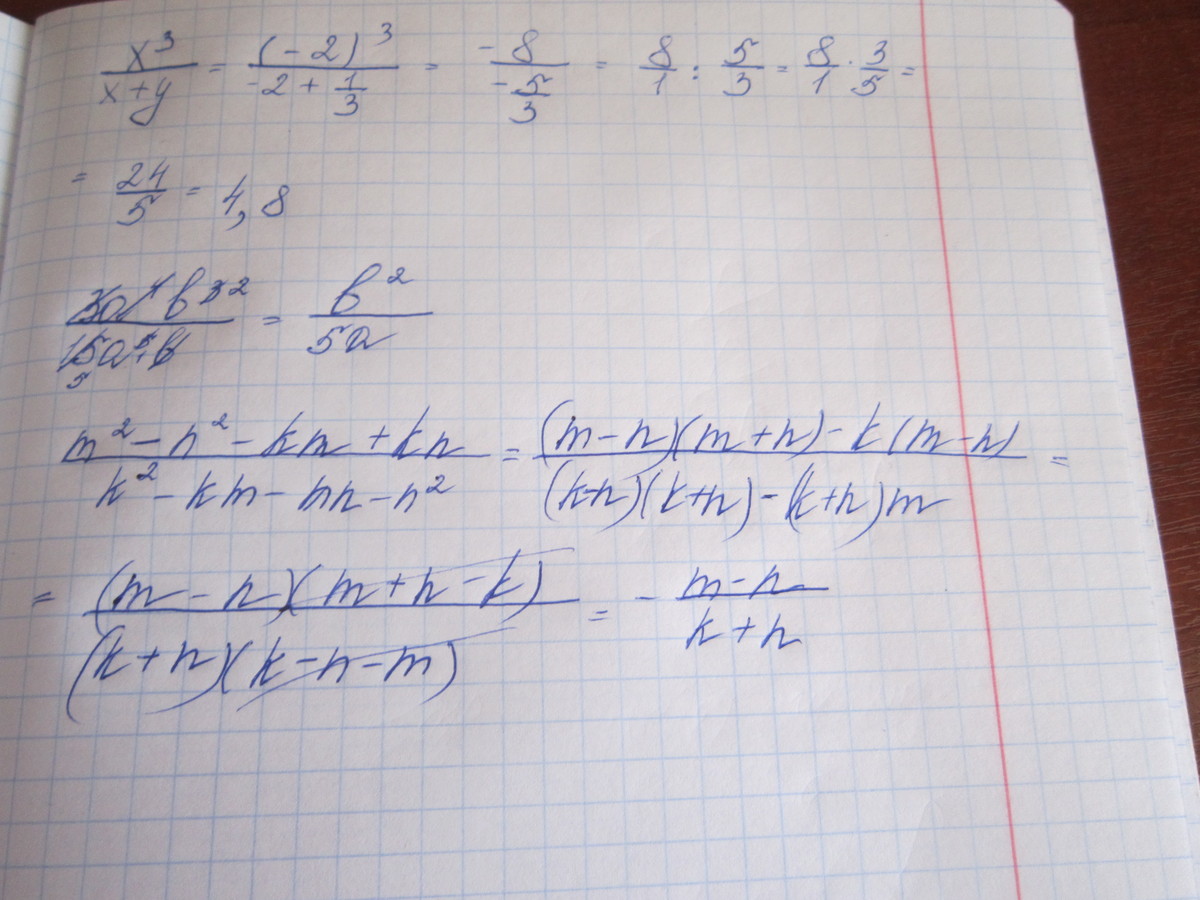 x³/(x+y) = (-2)³/(-2 + 1/3) = -8/(-5/3) = 8/1 : 5/3 = 8/1 · 3/5 =
= 24/5 = 4,8
3a⁴b³ ²/15a⁵b 5 = b²/5a
(m² - n² - km + kn)/(k² - km - mn - n²) = ((m-n)(m+n) - k(m-n))/((k-n)(k+n) - (k+n)m) =
= ((m-n)(m+n-k))/((k+n)(k-n-m)) = - (m-n)/(k+n)